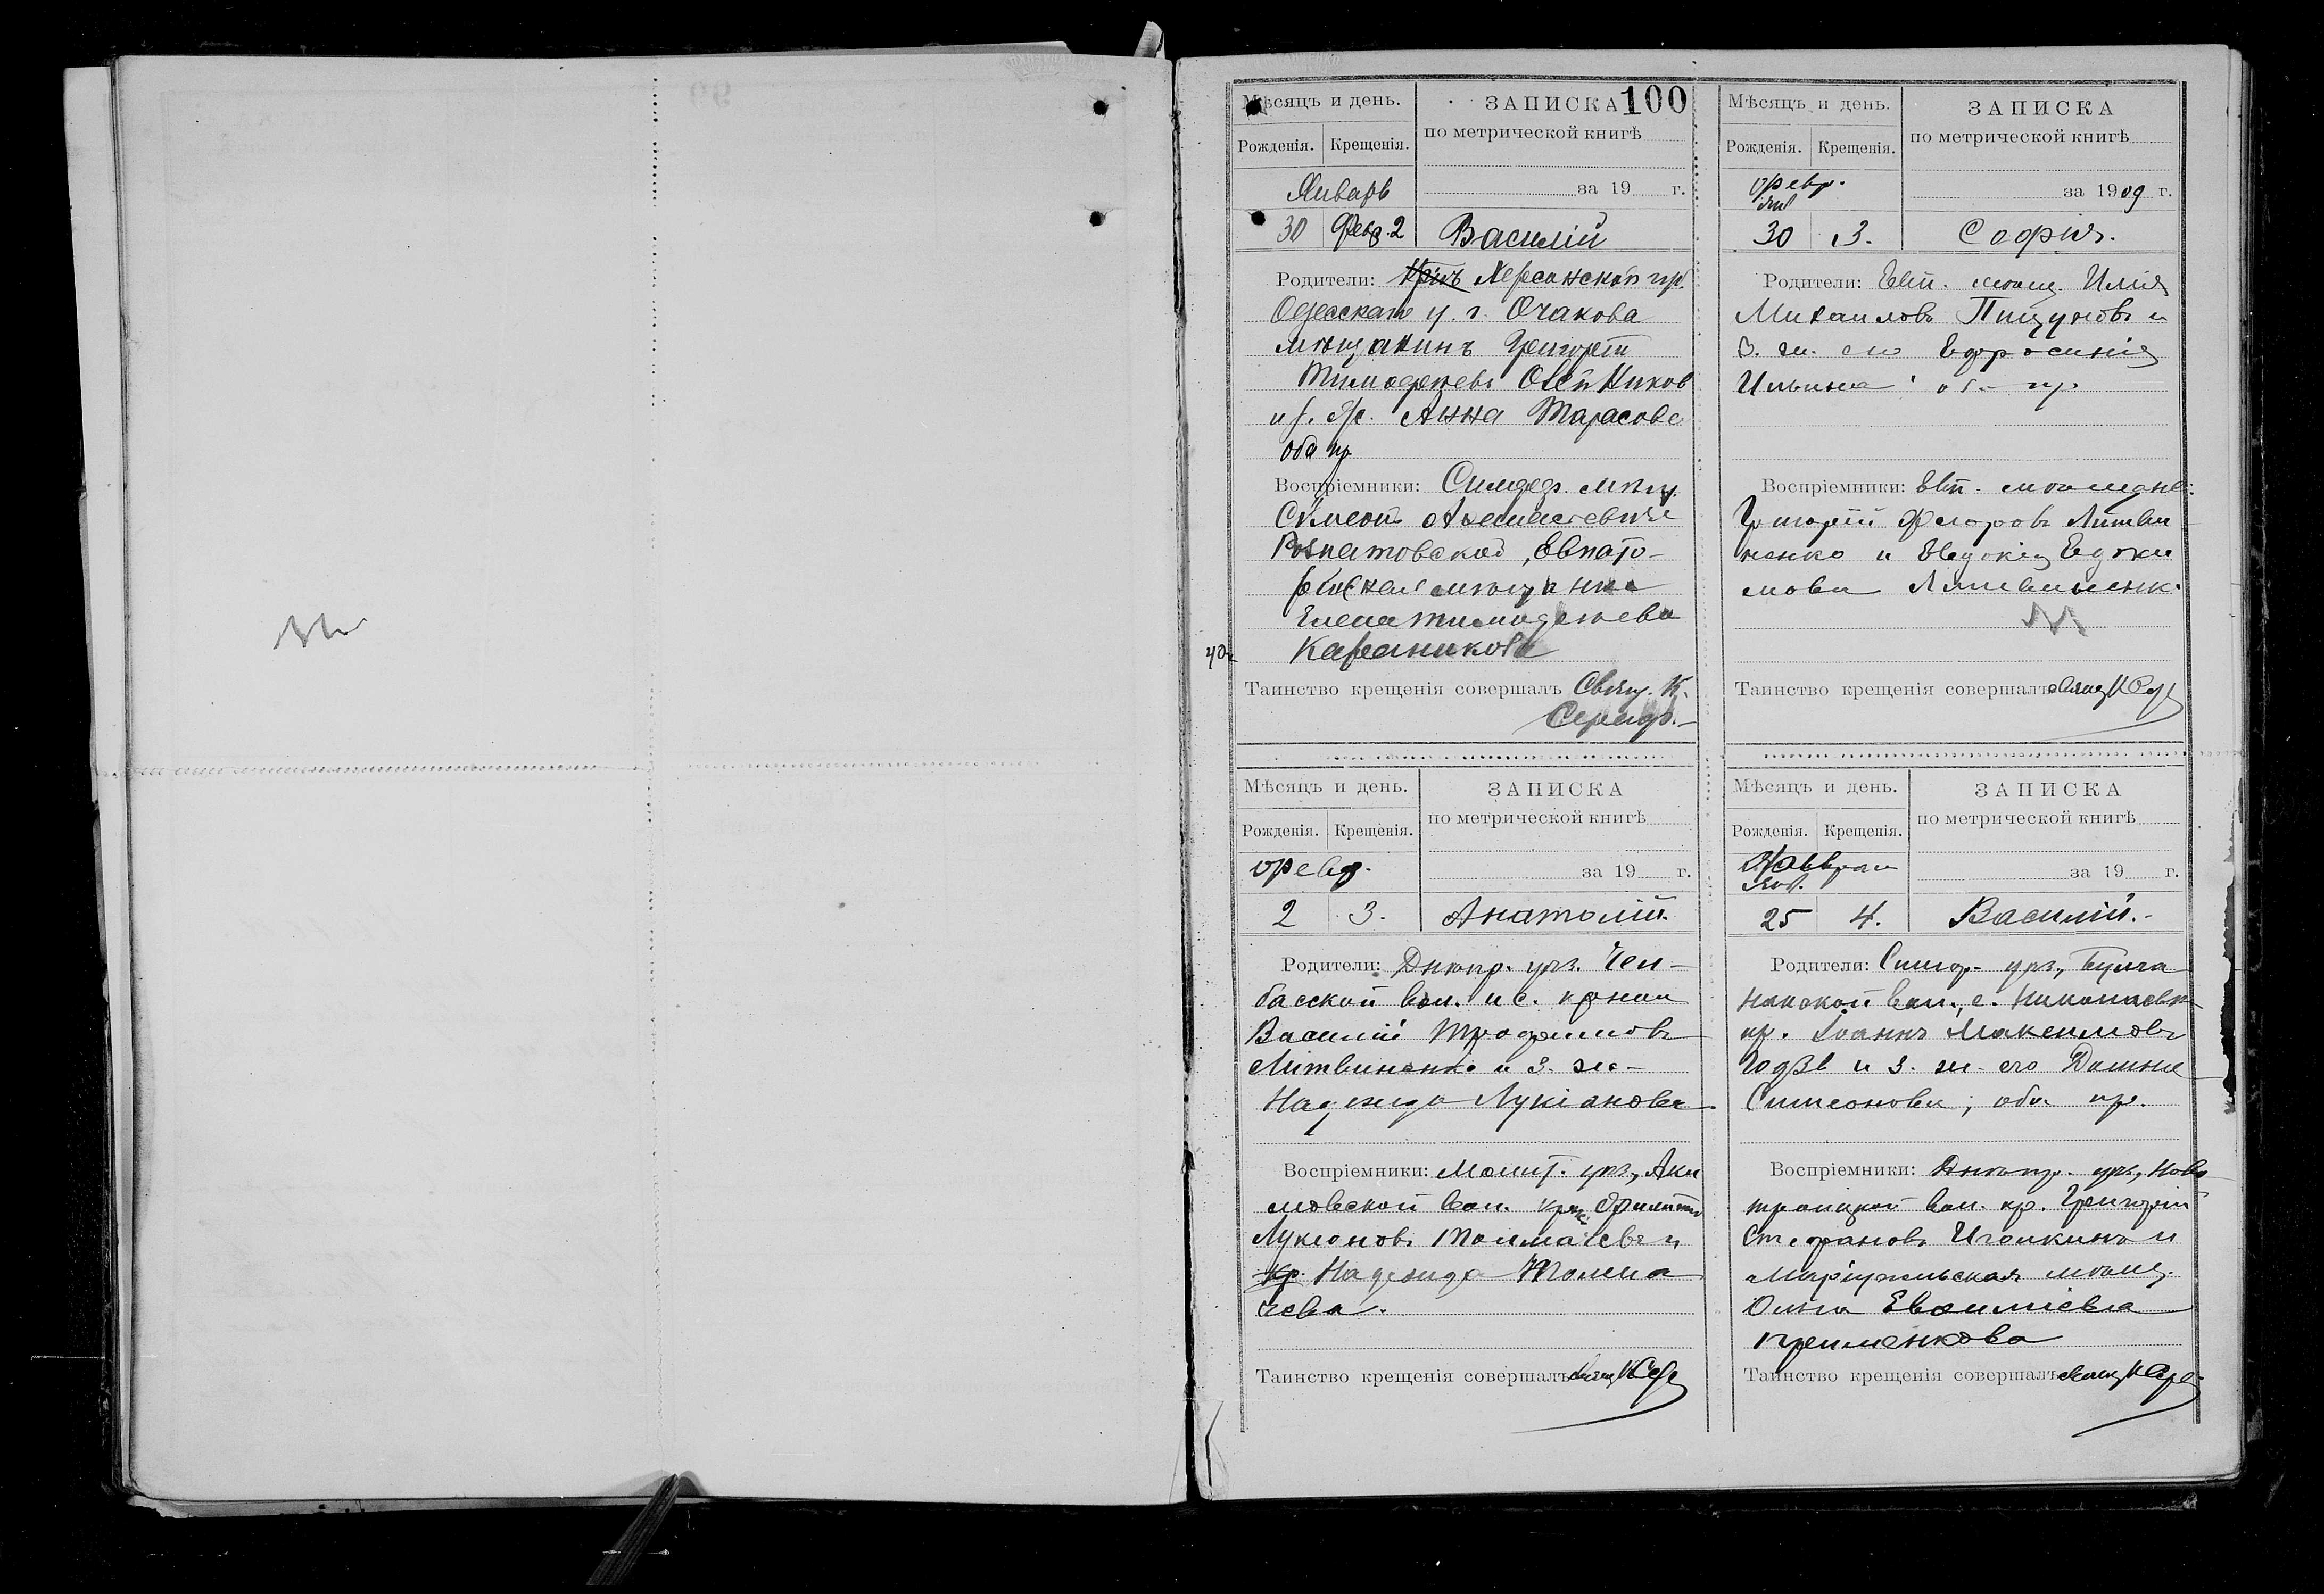 100
Мѣсяцъ и день.
ЗАПИСКА
Рожденія. Крещенія.
по метрической книгѣ
Январь
за 19 г.
30 Февр. 2 Василій
Родители: Херсонской гу.
Одесскаго у. г. Очакова
мѣщанинъ Григорій
Тимофеевъ
Анна Тарасова
оба пр.
Воспріемники: Симфер. мѣщ.
Симеонъ
Евпато-
рійская мѣщанка
Елена Тимофеева
Таинство крещенія совершалъ Свящ. К.
Середо.
Мѣсяцъ и день.
ЗАПИСКА
Рожденія. Крещенія.
по метрической книгѣ
Февр.
янв
за 1909 г.
30 3. Софія.
Родители: Евп. мѣщ. Илія
Михаиловъ Пицуновъ и
з. ж. его Ефросинія
Ильина об. пр.
Воспріемники: Евп. мѣщане:
Григорій Федоровъ Литви
ненко и Евдокія Евдоки
мова Литвиненк.
Таинство крещенія совершалъ свящ К Сер
Мѣсяцъ и день.
ЗАПИСКА
Рожденія. Крещенія.
по метрической книгѣ
Февр.
за 19 г.
2 3. Анатолій.
Родители: Днѣпр. уѣз. Чел-
басской вол. и с. кр-нин
Василій Трофимовъ
Литвиненко и з. же-
Надежда Лукіанова
Воспріемники: Мелит. уѣз., Аки
мовской вол. Филиппъ
Лукіоновъ Толмачевъ и
кр. Надежда Толма
чева.
Таинство крещенія совершалъ свящ К Сер
Мѣсяцъ и день.
ЗАПИСКА
Рожденія. Крещенія.
по метрической книгѣ
янв.
за 19 г.
25 4. Василій.-
Родители: Симф. уѣз., Булга
накской вол., с. Николаевк
кр. Іоаннъ Максимовъ
и з. ж. его Домна
Симеонова; оба пр.
Воспріемники: Днѣпр. уѣз., Ново
троицкой вол. кр. Григорій
Стефановъ Иголкинъ и
Маріупольская мѣщ.
Ольга
Таинство крещенія совершалъ свящ К Сере